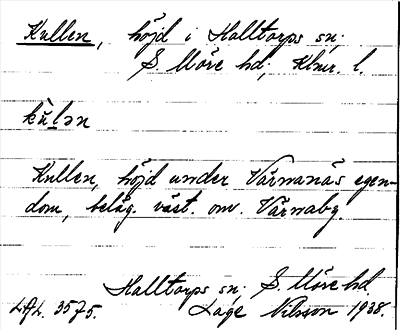 Kullen, höjd i Halltorps sn.
S. Möre hd, Klmr. l.
kùlən
Kullen, höjd under Värnanäs egen-
dom, beläg. väst. om. Värnaby.
Halltorps sn. S. Möre hd
LAL. 3575. Lage Nilsson 1938.